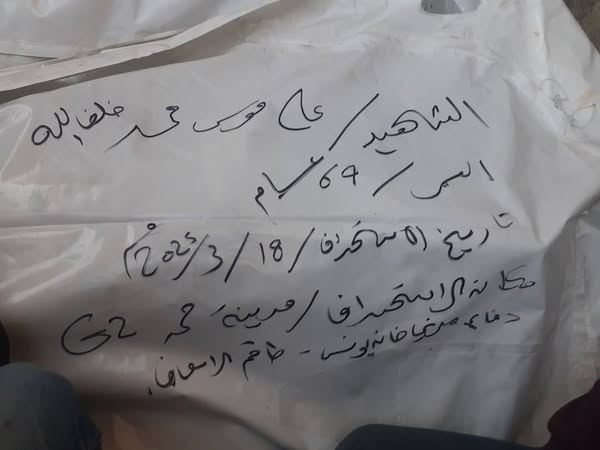 الشهيد / علي موسى محمد خلف الله
العمر / 69 عام
تاريخ الاستهداف / 18 / 3 / 2025م
مكان الاستهداف / مدينة حمد G2
دفاع مدني خانيونس - طاقم الإسعاف